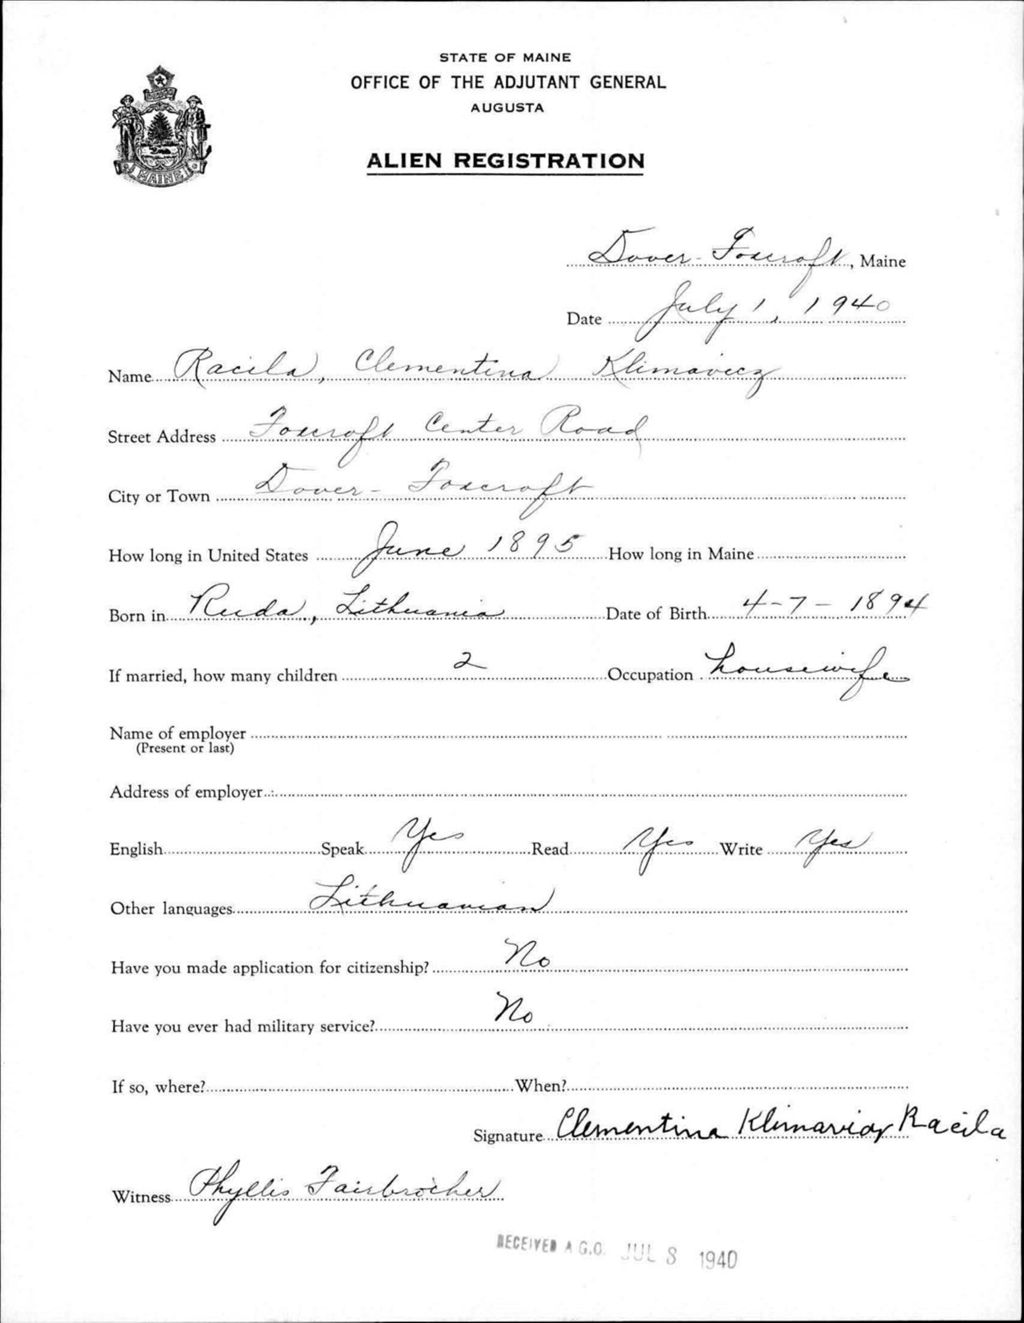 STATE OF MAINE
OFFICE OF THE ADJUTANT GENERAL
AUGUSTA
ALIEN REGISTRATION
MAINE
Dover-Foxcroft, Maine
Date July 1, 1940
Name Racila, Clementina Klimavicz
Street Address Foxcroft Center Road
City or Town Dover-Foxcroft
How long in United States June 1895 How long in Maine
Born in Ruda, Lithuania Date of Birth 4-7-1894
If married, how many children 2 Occupation housewife
Name of employer
(Present or last)
Address of employer
English Speak Yes Read Yes Write Yes
Other languages Lithuanian
Have you made application for citizenship? No
Have you ever had military service? No
If so, where? When?
Signature Clementina Klimavicz Racila
Witness Phyllis Fairbrother
RECEIVED A.G.O. JUL 8 1940